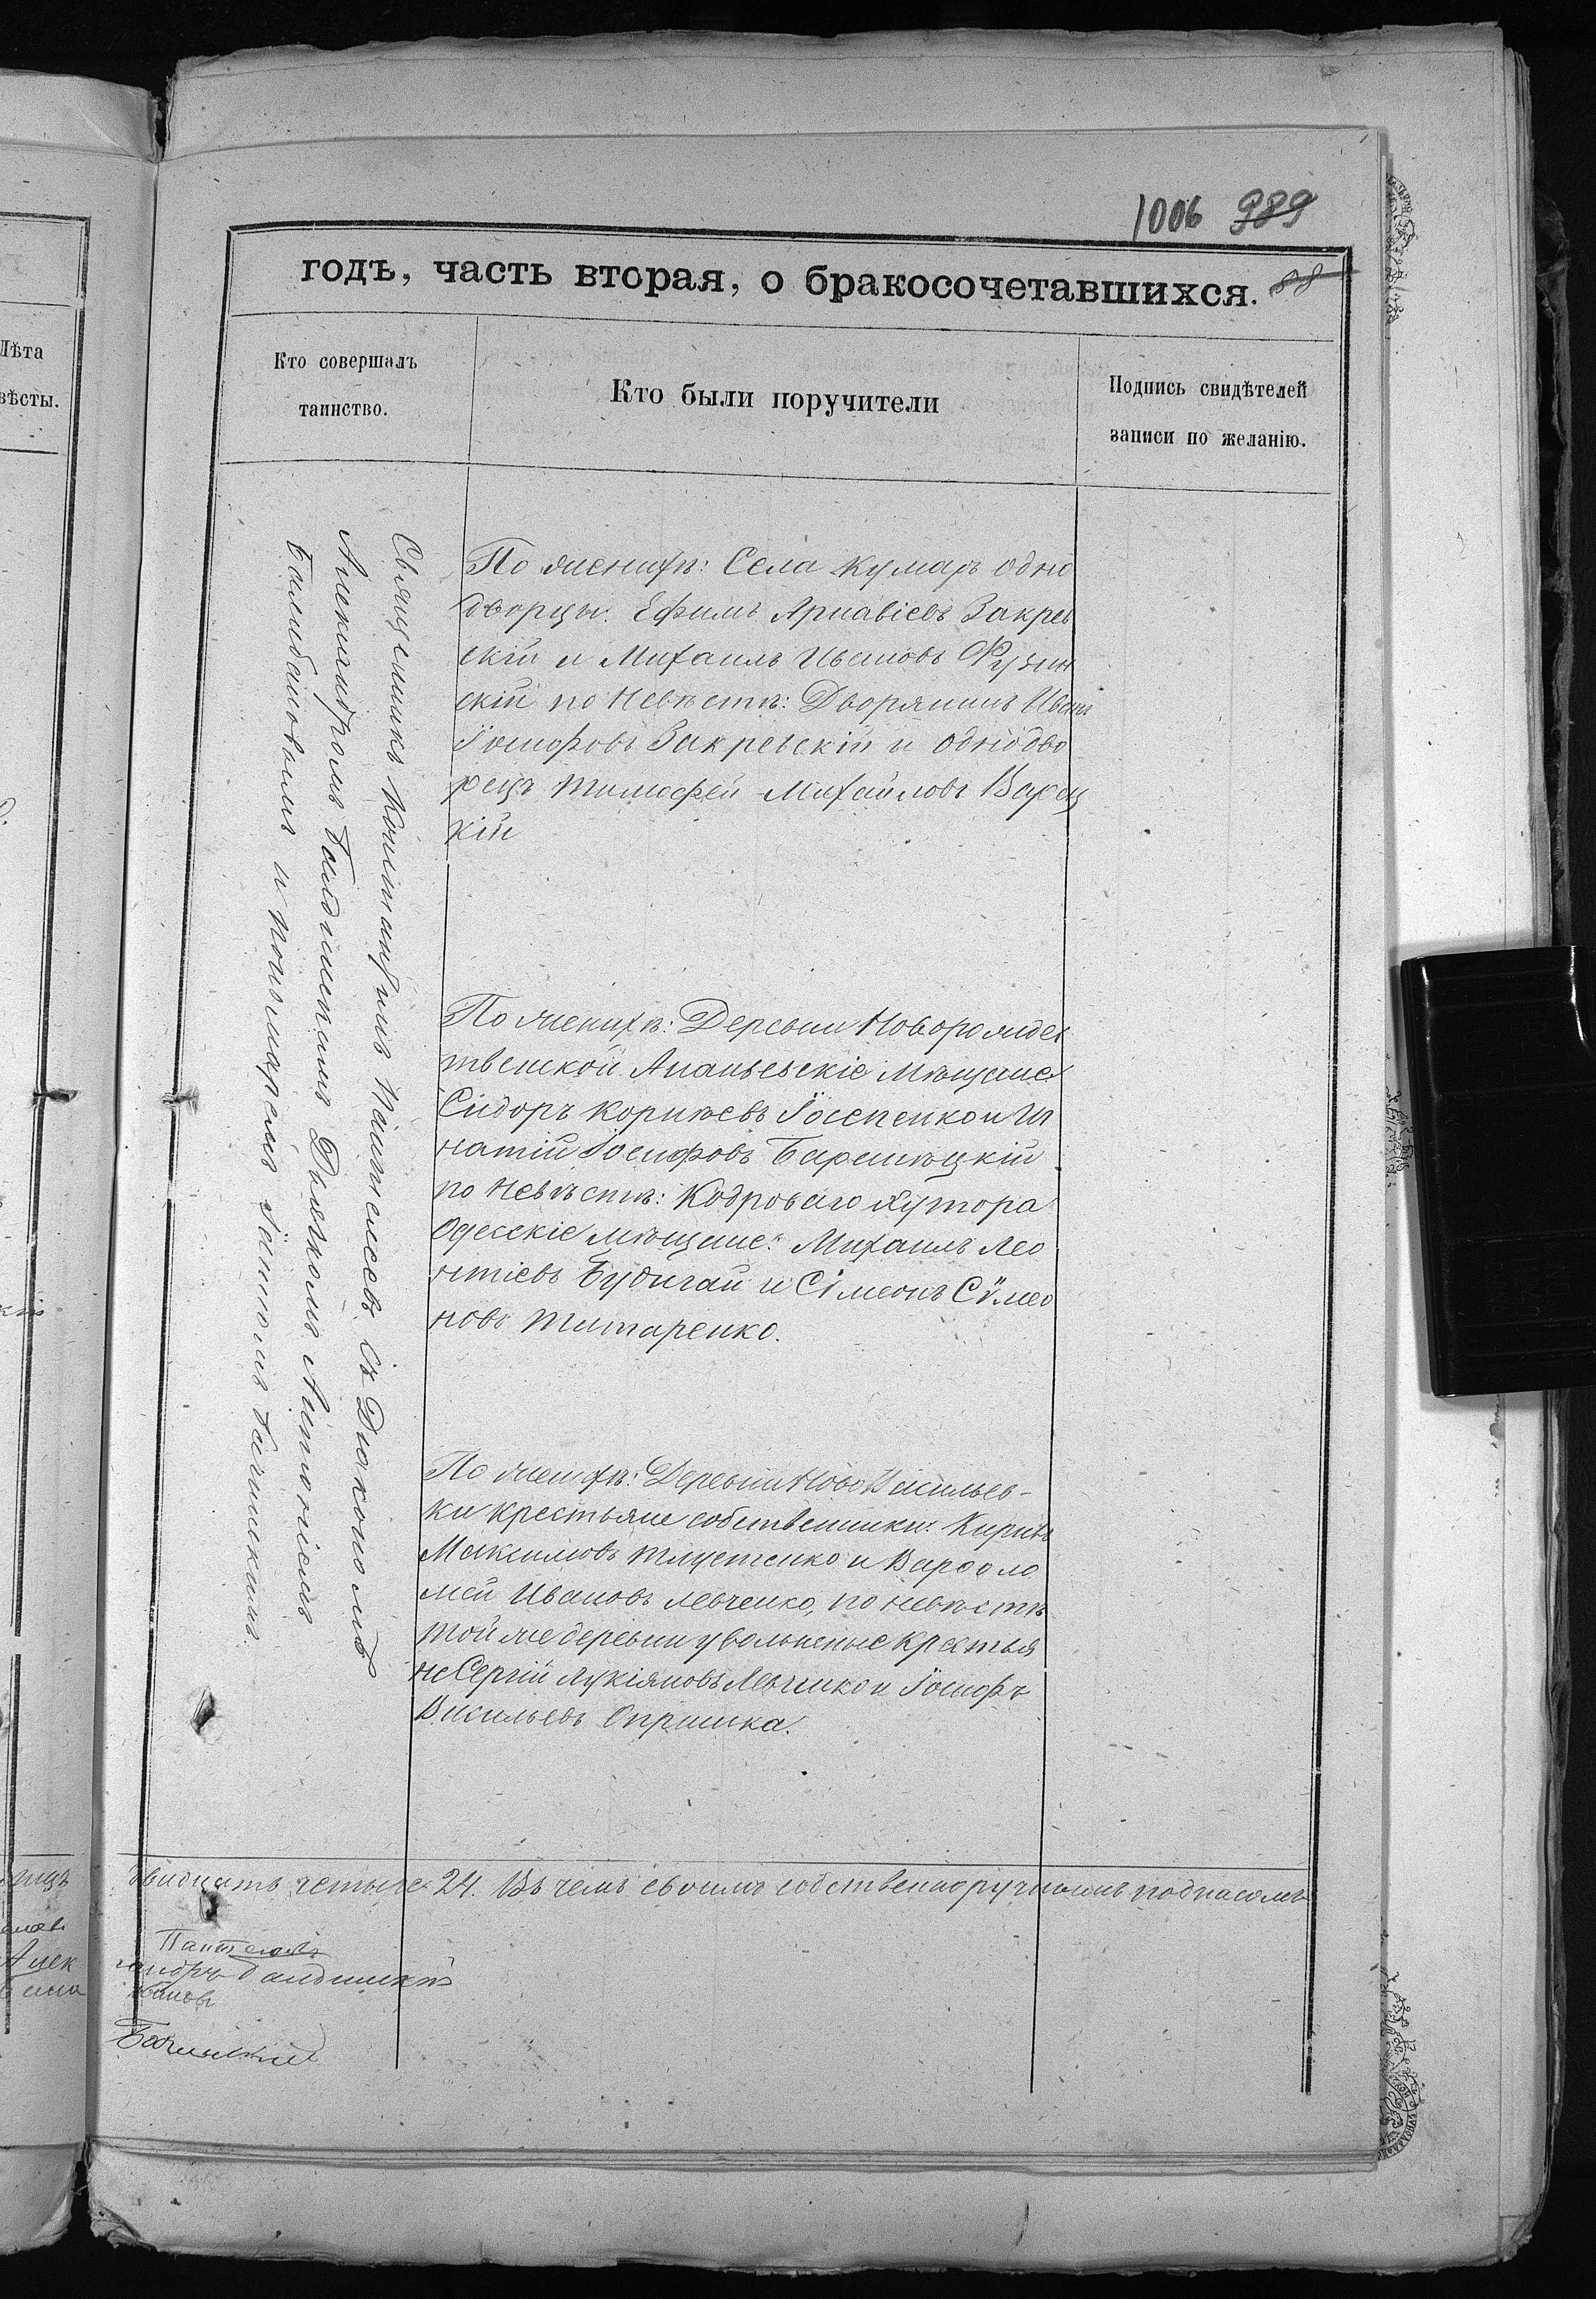 1006 989
годъ, часть вторая, о бракосочетавшихся. 88
Лѣта
вѣсты.
Кто совершалъ
таинство.
Кто были поручители
Подпись свидѣтелей
записи по желанію.
Священникъ Константинъ Пантелеевъ съ Діакономъ
Александромъ Дьячкомъ Антоніемъ
и пономаремъ
По женихѣ: Села Кумаръ одно
дворцы: Ефимъ Закрев
скій и Михаилъ Ивановъ
скій по Невѣстѣ: Дворянинъ Иванъ
Іосифовъ Закревскій и однодво
рецъ Тимофей Михайловъ
кій
По женихѣ: Деревни Новорождес
твенской Ананьевскіе Мѣщане:
Сидоръ Корнѣевъ Іосепенко и Иг
натій Іосифовъ
по Невѣстѣ: Кодроваго Хутора
Одесскіе мѣщане: Михаилъ Лео
нтіевъ Будигай и Сѵмеонъ Сѵмео
новъ Титаренко.
По женихѣ: Деревни Ново Васильев-
ки крестьяне собственники: Кирилъ
Максимовъ Тлустенко и Варѳоло
мей Ивановъ Левченко, по невѣстѣ
той же деревни увольненые крестья
не Сергій Лукіяновъ Левченко и Іосифъ
Васильевъ Опришка.
двадцать четыре 24. Въ чемъ своимъ собственноручнымъ подписомъ
Алек
Пантелеевъ
сандръ
бановъ
Бачинскій